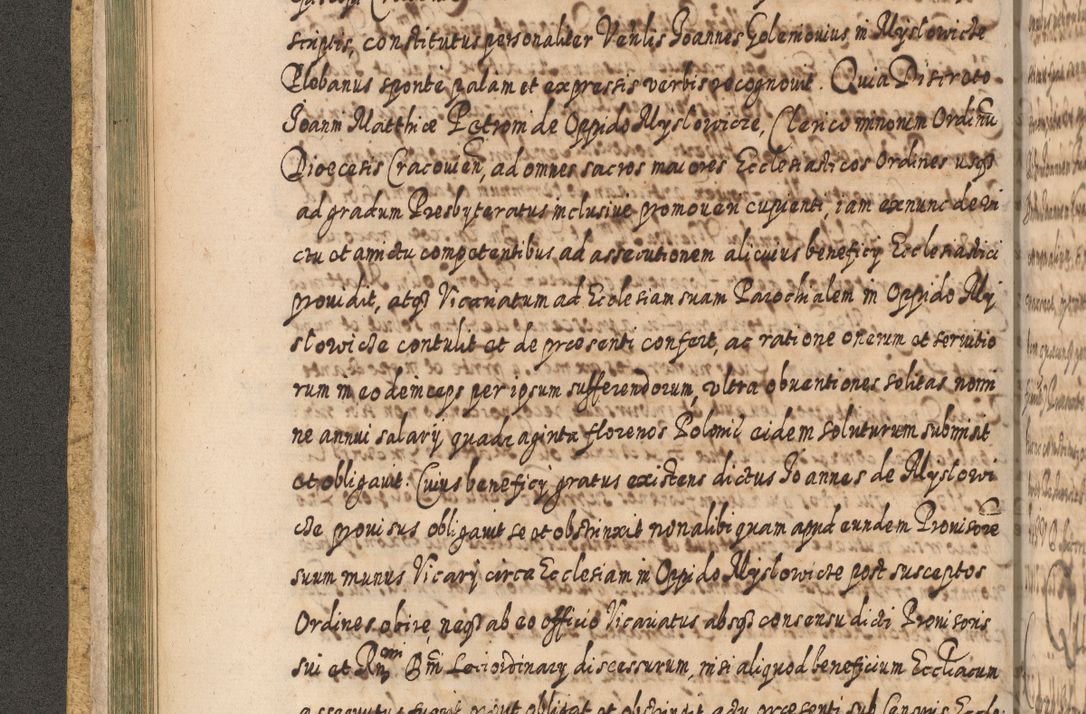 scriptis, constitutus personaliter Venlis Joannes Golemovius in Myslowicze
Plobanus sponte palam et expressis verbis recognovit. Quia Discreto
Joanni Matthiæ Petrom de Oppido Myslowicze, Clerico minorum Ordinū
Dioecesis Cracovien, ad omnes sacros maiores Ecclesiasticos Ordines usqȝ
ad gradum Presbyteratus inclusive promoveri cupienti, iam exnunc de vi
ctu et amictu competentibus ad assecutionem alicuius beneficÿ Ecclesiastici
providit, atqȝ Vicariatum ad Ecclesiam suam Parochialem in Oppido My
slowicze contulit et de præsenti confert, ac ratione onerum et servitio
rum in eo demceps per ipsum sufferendorum, ultra obventiones solitas nomi
ne annui salarÿ quadraginta florenos Polonil eidem soluturum submisit
et obligavit. Cuius beneficÿ gratus existens dictus Joannes de Myslowi
cze provisus obligavit se et obstrinxit non alibi quam apud eundem Provisorē
suum munus Vicarÿ circa Ecclesiam in Oppido Myslowicze post susceptos
Ordines obire, neqȝ ab eo officio Vicariatus absqȝ consensu dicti Provisoris
sui et Rñ Dni Loci ordinarÿ discessurum, nisi aliquod beneficium Eccliarum